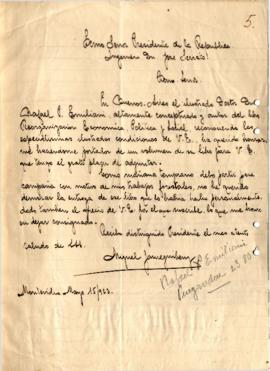 5.
Exmo Señor Presidente de la Republica
Ingeniero Don José Serrato
Exmo Señor
En Buenos Aires el ilustrado Doctor Don
Rafael P. Emiliani, altamente conceptuado y autor del libro
Reorganizacion Economica, Politica y Social, reconociendo las
especialisimas ilustradas condiciones de V.E., ha querido honrar-
me haciendome portador de un volumen de su libro para V.E.
que tengo el grato placer de adjuntar.
Como mañana temprano debo partir para
campaña con motivo de mis trabajos forestales, no he querido
demorar la entrega de ese libro que la habria hecho personalmente,
dado tambien el aprecio de V.E. por el que suscribe, lo que me
en dejar consignado.
Reciba distinguido Presidente el mas atento
saludo de
Miguel
Rafael P Emiliani
Montevideo Mayo 15/923.